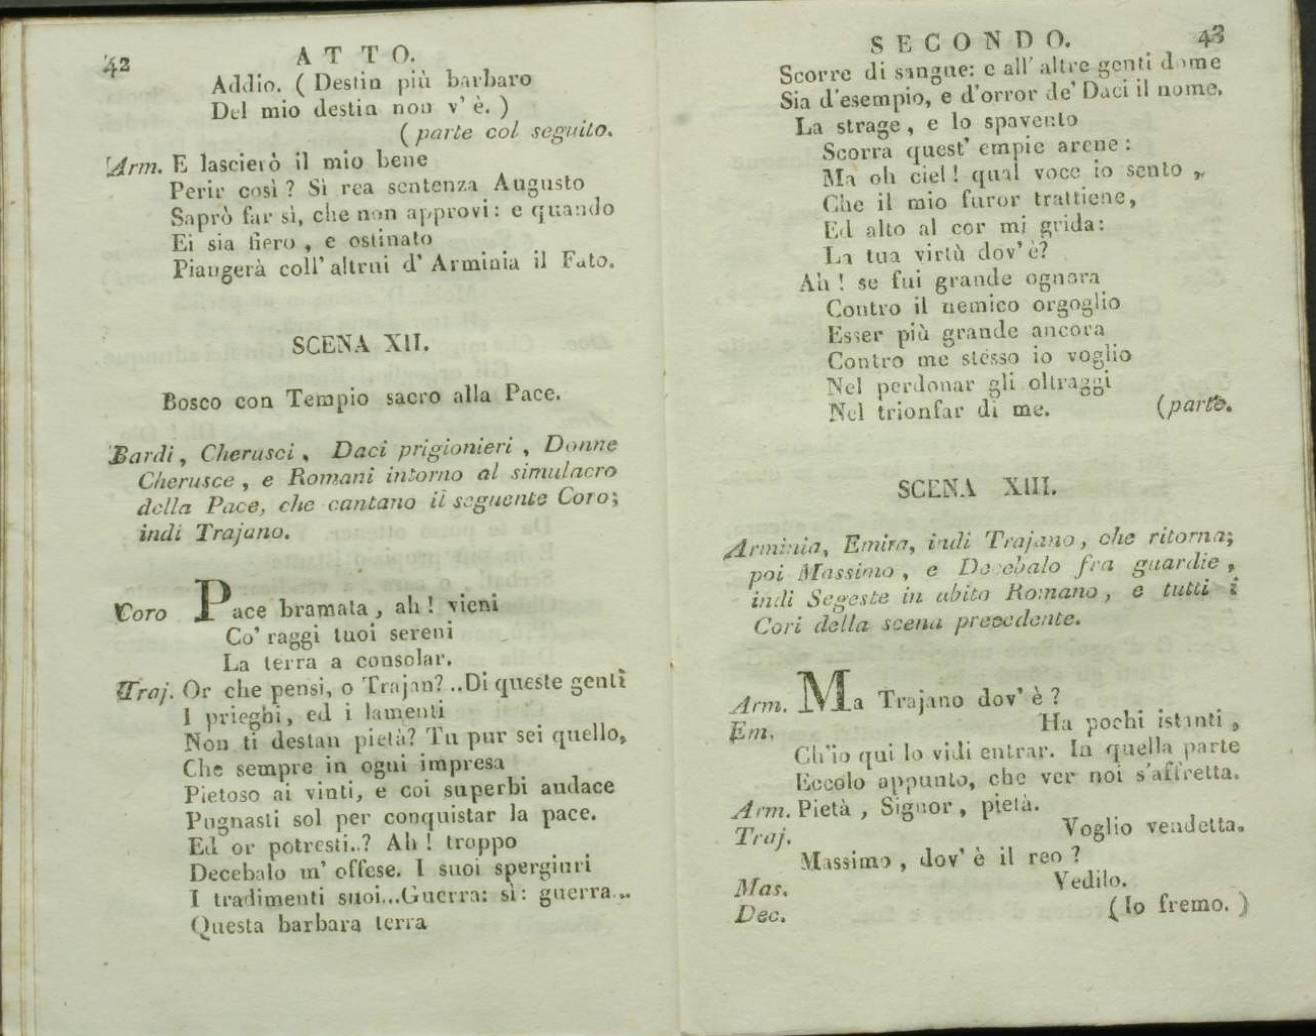 42
ATTO.
Addio. ( Destin più barbaro
Del mio destin non v' è. )
( parte col seguito.
Arm. E lascierò il mio bene
Perir così ? Sì rea sentenza Augusto
Saprò far sì, che non approvi : e quando
Ei sia fiero , e ostinato
Piangerà coll' altrui d' Arminia il Fato.
SCENA XII.
Bosco con Tempio sacro alla Pace.
Bardi , Cherusci , Daci prigionieri , Donne
Cherusce , e Romani intorno al simulacro
della Pace, che cantano il seguente Coro;
indi Trajano.
Coro Pace bramata , ah ! vieni
Co' raggi tuoi sereni
La terra a consolar.
Traj. Or che pensi, o Trajan? ..Di queste genti
I prieghi, ed i lamenti
Non ti destan pietà? Tu pur sei quello,
Che sempre in ogni impresa
Pietoso ai vinti, e coi superbi audace
Pugnasti sol per conquistar la pace.
Ed or potresti..? Ah ! troppo
Decebalo m' offese. I suoi spergiuri
I tradimenti suoi...Guerra: sì: guerra...
Questa barbara terra
SECONDO.
43
Scorre di sangue: e all' altre genti dome
Sia d'esempio, e d'orror de' Daci il nome.
La strage , e lo spavento
Scorra quest' empie arene :
Ma oh ciel ! qual voce io sento ,
Che il mio furor trattiene,
Ed alto al cor mi grida:
La tua virtù dov' è?
Ah ! se fui grande ognora
Contro il nemico orgoglio
Esser più grande ancora
Contro me stesso io voglio
Nel perdonar gli oltraggi
Nel trionfar di me.
(parte.
SCENA XIII.
Arminia, Emira, indi Trajano, che ritorna;
poi Massimo , e Decebalo fra guardie ,
indi Segeste in abito Romano , e tutti i
Cori della scena precedente.
Arm. Ma Trajano dov' è ?
Em. Ha pochi istanti ,
Ch'io qui lo vidi entrar. In quella parte
Eccolo appunto, che ver noi s'affretta.
Arm. Pietà , Signor , pietà.
Traj. Voglio vendetta.
Massimo , dov' è il reo ?
Mas. Vedilo.
Dec. (Io fremo. )